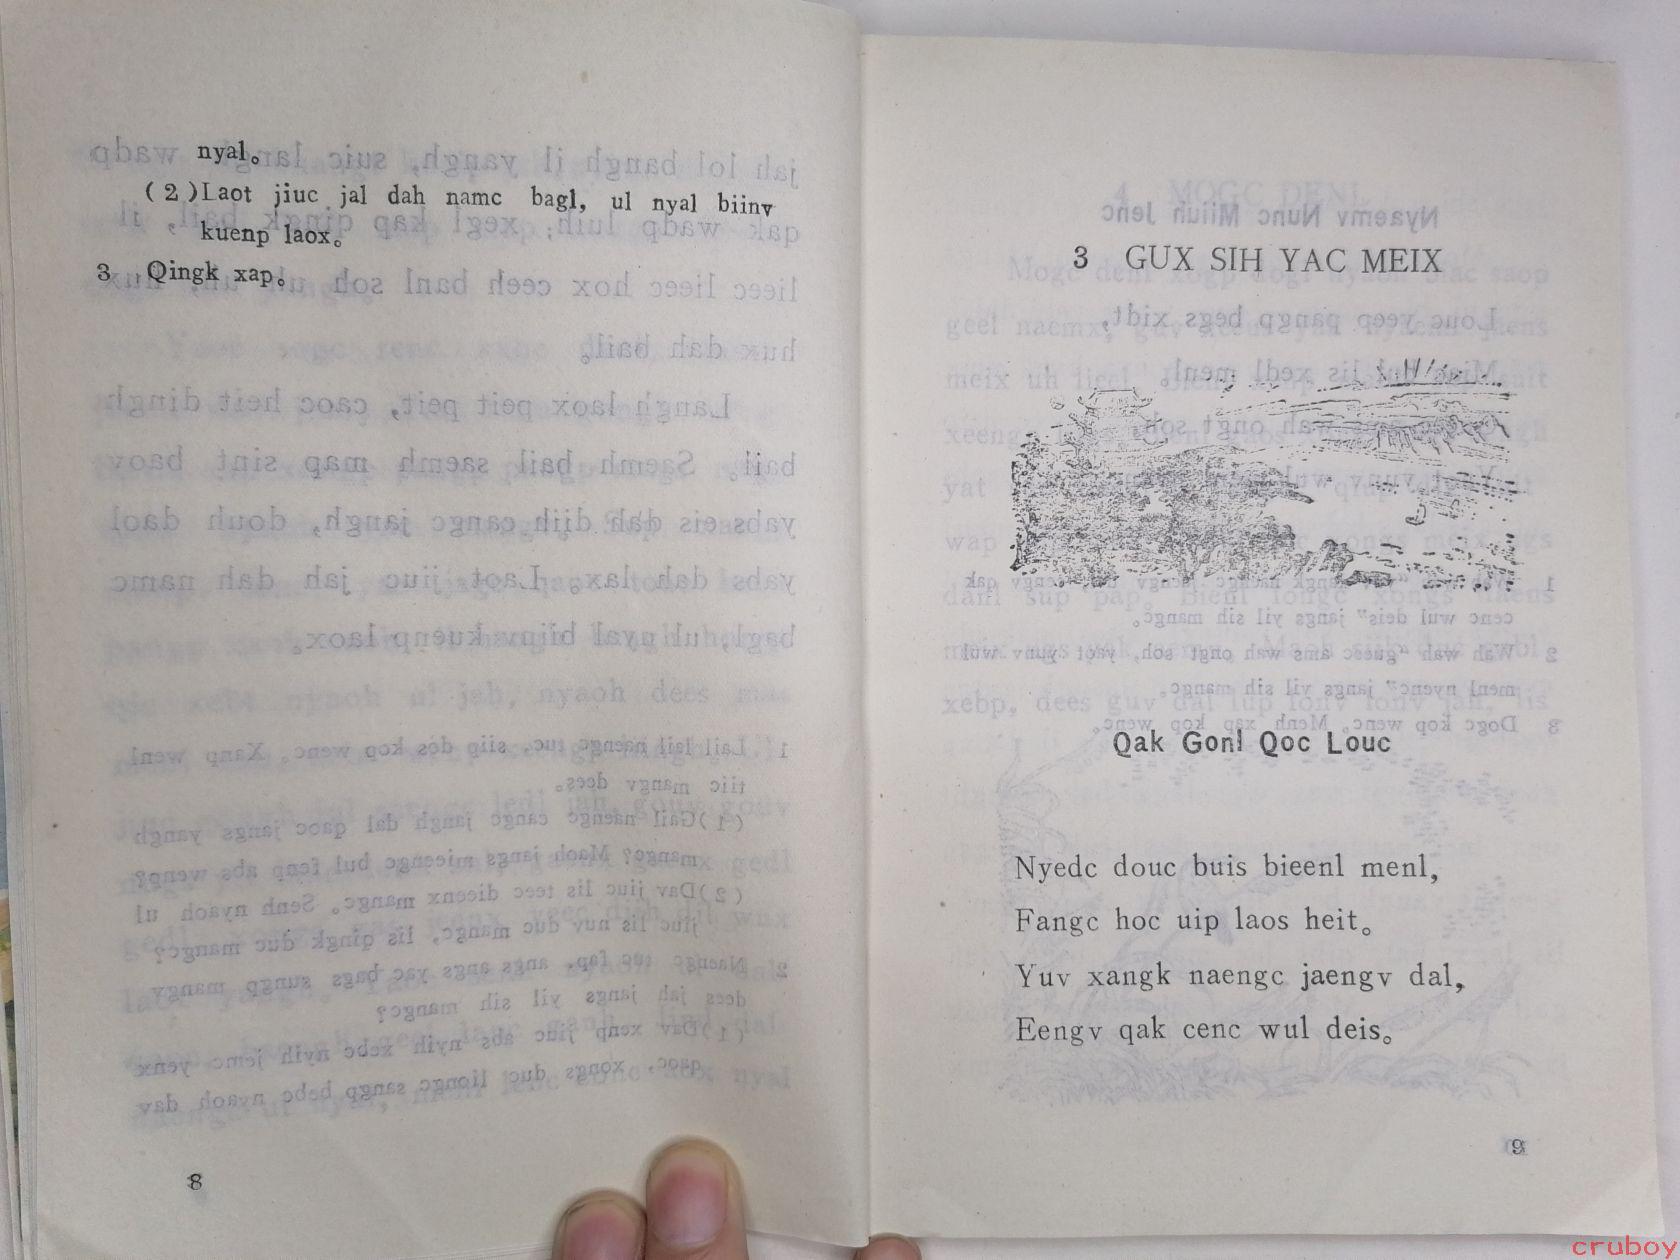 nyal。
(2)Laot jiuc jal dah namc bagl, ul nyal biinv
kuenp laox。
3 Qingk xap。
8
3 GUX SIH YAC MEIX
Qak Gonl Qoc Louc
Nyedc douc buis bieenl menl,
Fangc hoc uip laos heit。
Yuv xangk naengc jaengv dal,
Eengv qak cenc wul deis。
9
cruboy